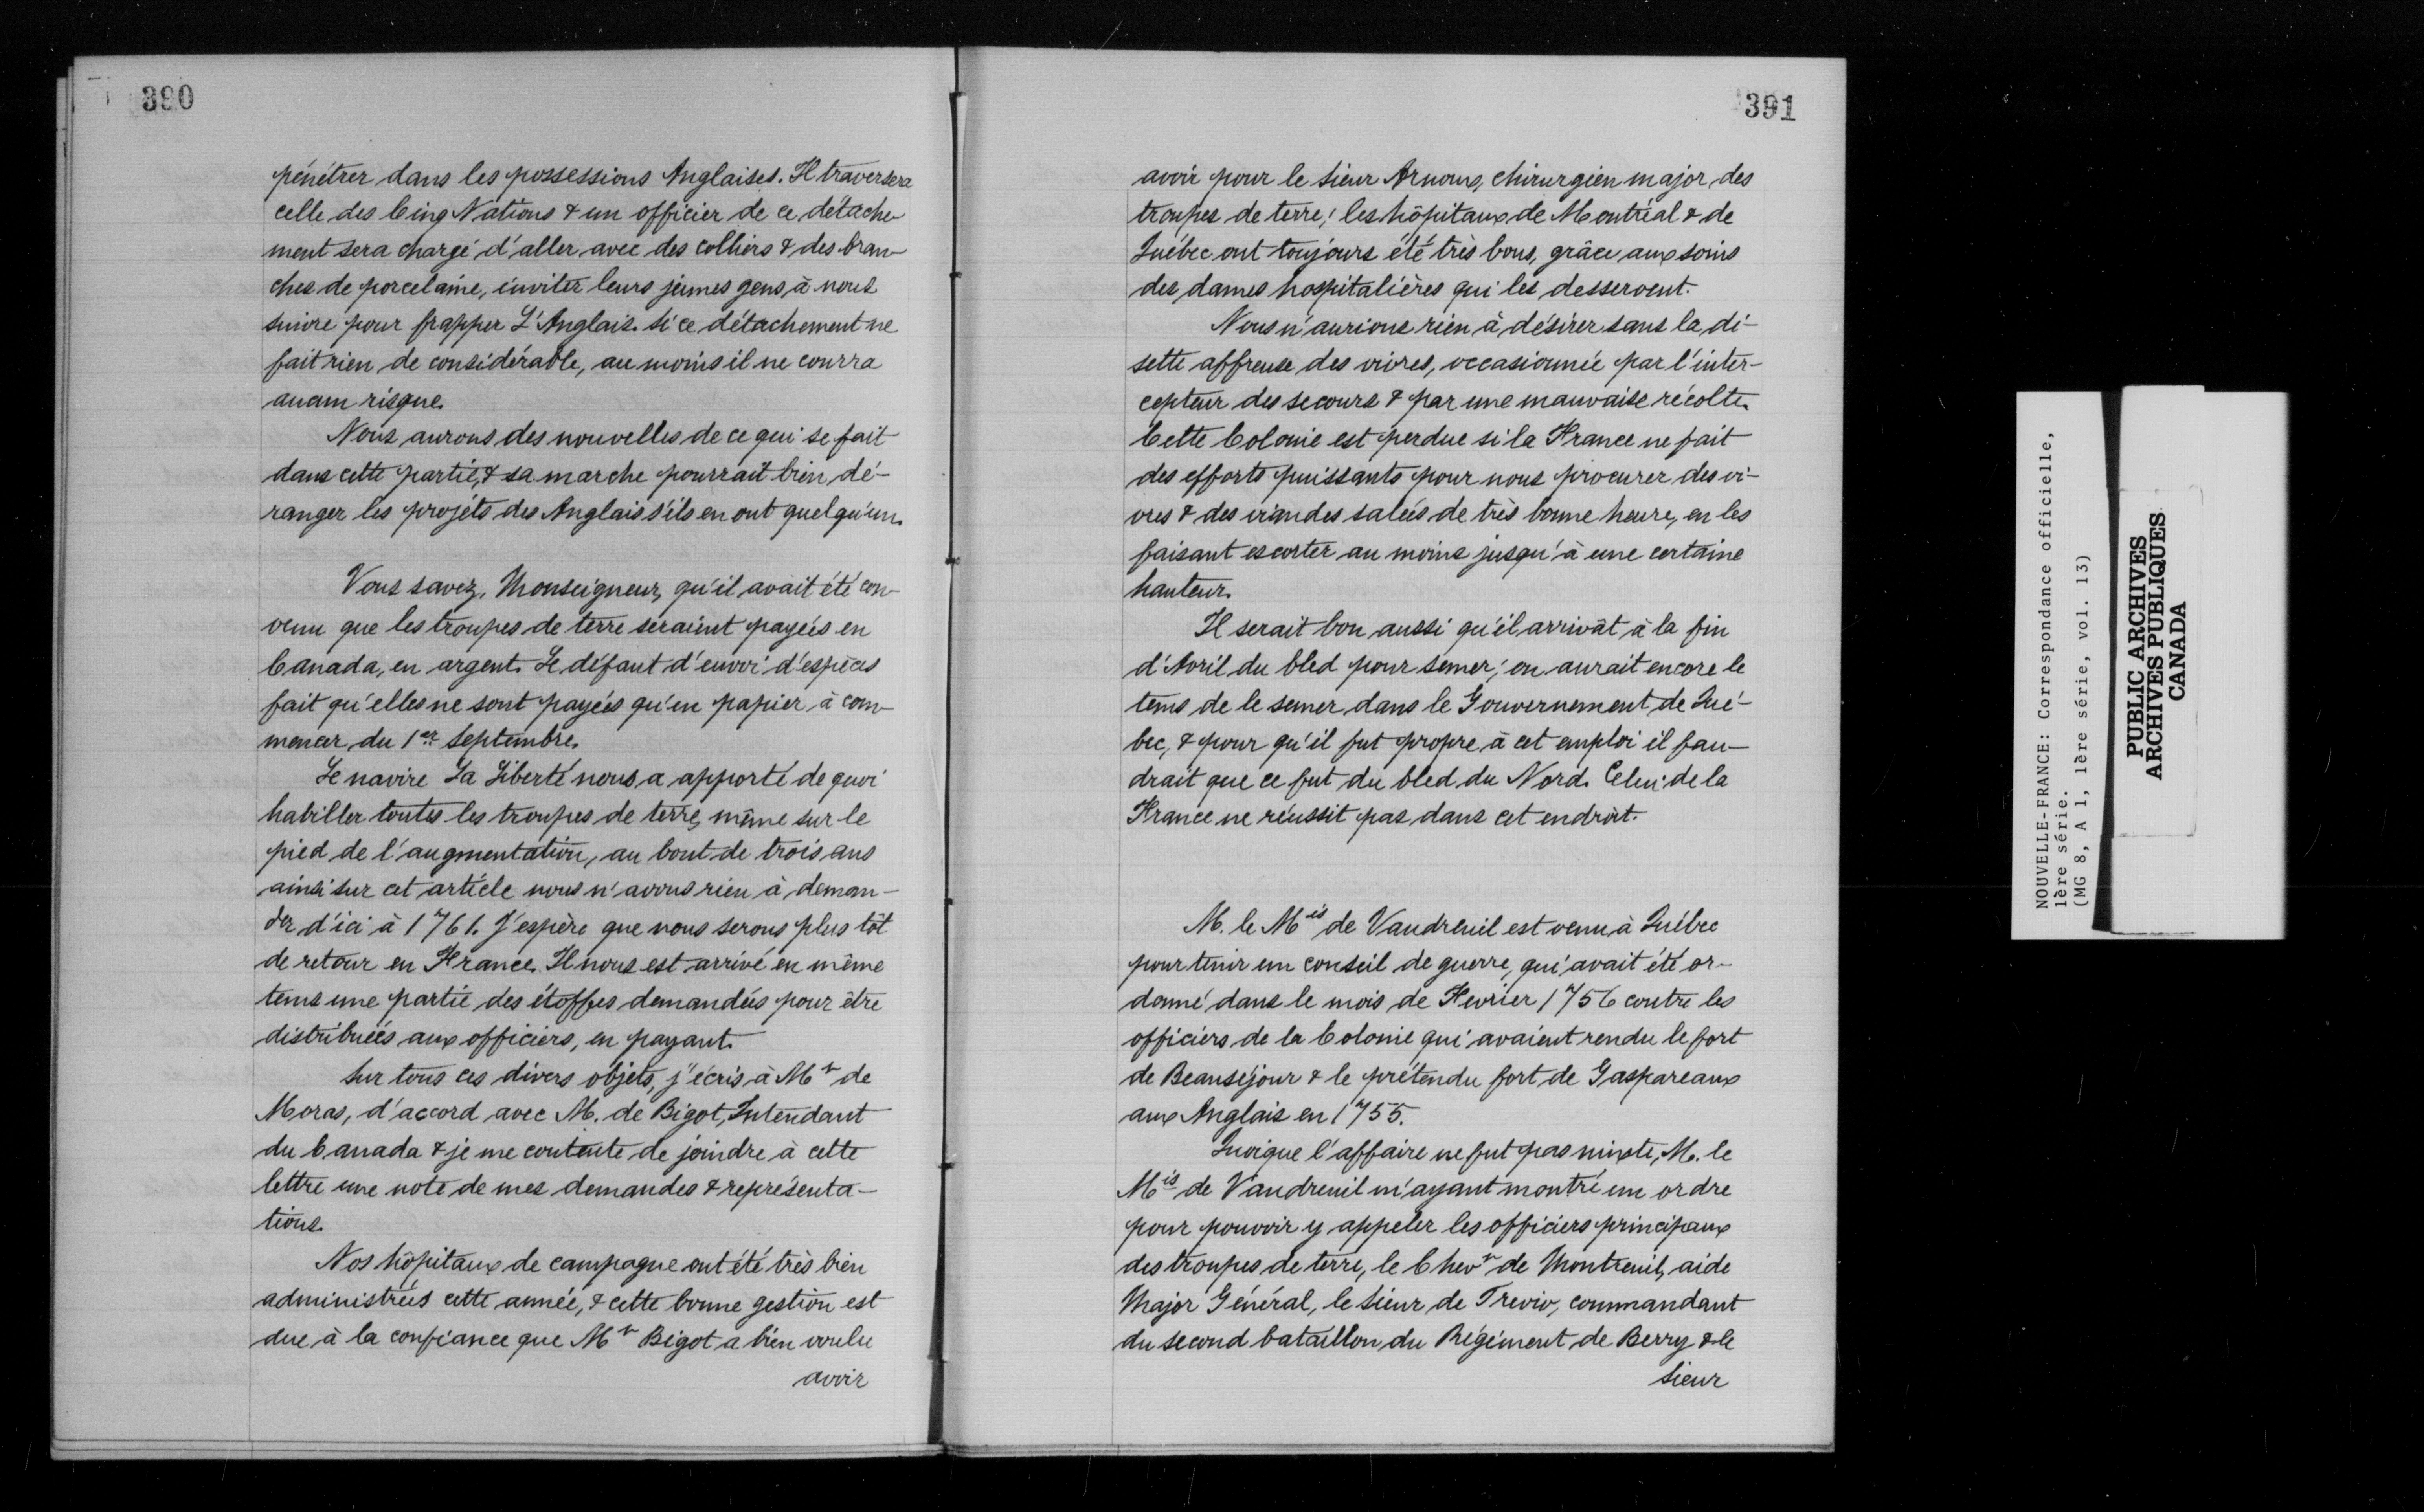 390
pénétrer dans les possessions Anglaises. Il traversera
celle des Cinq Nations & un officier de ce détache-
ment sera chargé d'aller avec des colliers & des bran-
ches de porcelaine, inviter leurs jeunes gens à nous
suivre pour frapper L'Anglais. Si ce détachement ne
fait rien de considérable, au moins il ne courra
aucun risque.
Nous aurons des nouvelles de ce qui se fait
dans cette partie, & sa marche pourrait bien dé-
ranger les projets des Anglais s'ils en ont quelqu'un.
Vous savez, Monseigneur, qu'il avait été con-
venu que les troupes de terre seraient payées en
Canada, en argent. Le défaut d'envoi d'espèces
fait qu'elles ne sont payées qu'en papier à com-
mencer du 1er Septembre.
Le navire La Liberté nous a apporté de quoi
habiller toutes les troupes de terre, même sur le
pied de l'augmentation, au bout de trois ans
ainsi sur cet article nous n'avons rien à deman-
der d'ici à 1761. J'espère que nous serons plus tôt
de retour en France. Il nous est arrivé en même
tems une partie des étoffes demandées pour être
distribuées aux officiers, en payant.
Sur tous ces divers objets, j'écris à Mr de
Moras, d'accord avec M. de Bigot, Intendant
du Canada & je me contente de joindre à cette
lettre une note de mes demandes & représenta-
tions.
Nos hôpitaux de campagne ont été très bien
administrés cette année, & cette bonne gestion est
due à la confiance que Mr Bigot a bien voulu
avoir
391
avoir pour le Sieur Arnoux, chirurgien major des
troupes de terre; les hôpitaux de Montréal & de
Québec ont toujours été très bons, grâce aux soins
des dames hospitalières qui les desservent.
Nous n'aurions rien à désirer sans la di-
sette affreuse des vivres, occasionnée par l'inter-
cepteur des secours & par une mauvaise récolte.
Cette Colonie est perdue si la France ne fait
des efforts puissants pour nous procurer des vi-
vres & des viandes salées de très bonne heure, en les
faisant escorter au moins jusqu'à une certaine
hauteur.
Il serait bon aussi qu'il arrivât à la fin
d'Avril du bled pour semer; on aurait encore le
tems de le semer dans le Gouvernement de Qué-
bec, & pour qu'il fut propre à cet emploi il fau-
drait que ce fut du bled du Nord. Celui de la
France ne réussit pas dans cet endroit.
M. le Mis de Vaudreuil est venu à Québec
pour tenir un conseil de guerre, qui avait été or-
donné dans le mois de Fevrier 1756 contre les
officiers de la Colonie qui avaient rendu le fort
de Beauséjour & le prétendu fort de Gaspareaux
aux Anglais en 1755.
Quoique l'affaire ne fut pas mixte, M. le
Mis de Vaudreuil m'ayant montré un ordre
pour pouvoir y appeler les officiers principaux
des troupes de terre, le Chevr de Montreuil, aide
Major Général, le Sieur de Trevio, commandant
du second bataillon du Régiment de Berry & le
Sieur
NOUVELLE-FRANCE: Correspondance officielle,
1ère série.
(MG 8, A 1, 1ère série, vol. 13)
PUBLIC ARCHIVES
ARCHIVES PUBLIQUES
CANADA